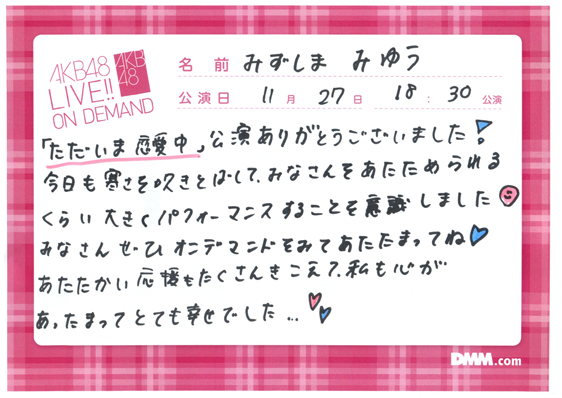 AKB48
LIVE!!
ON DEMAND
AKB
48
名前 みずしま みゆう
公演日 11月 27日 18:30公演
「ただいま恋愛中」公演ありがとうございました!
今日も寒さを吹きとばして、みなさんをあたためられる
くらい大きくパフォーマンスすることを意識しました
みなさんぜひオンデマンドをみてあたたまってね
あたたかい応援もたくさんきこえて、私も心が
あったまってとても幸せでした...
DMM.com